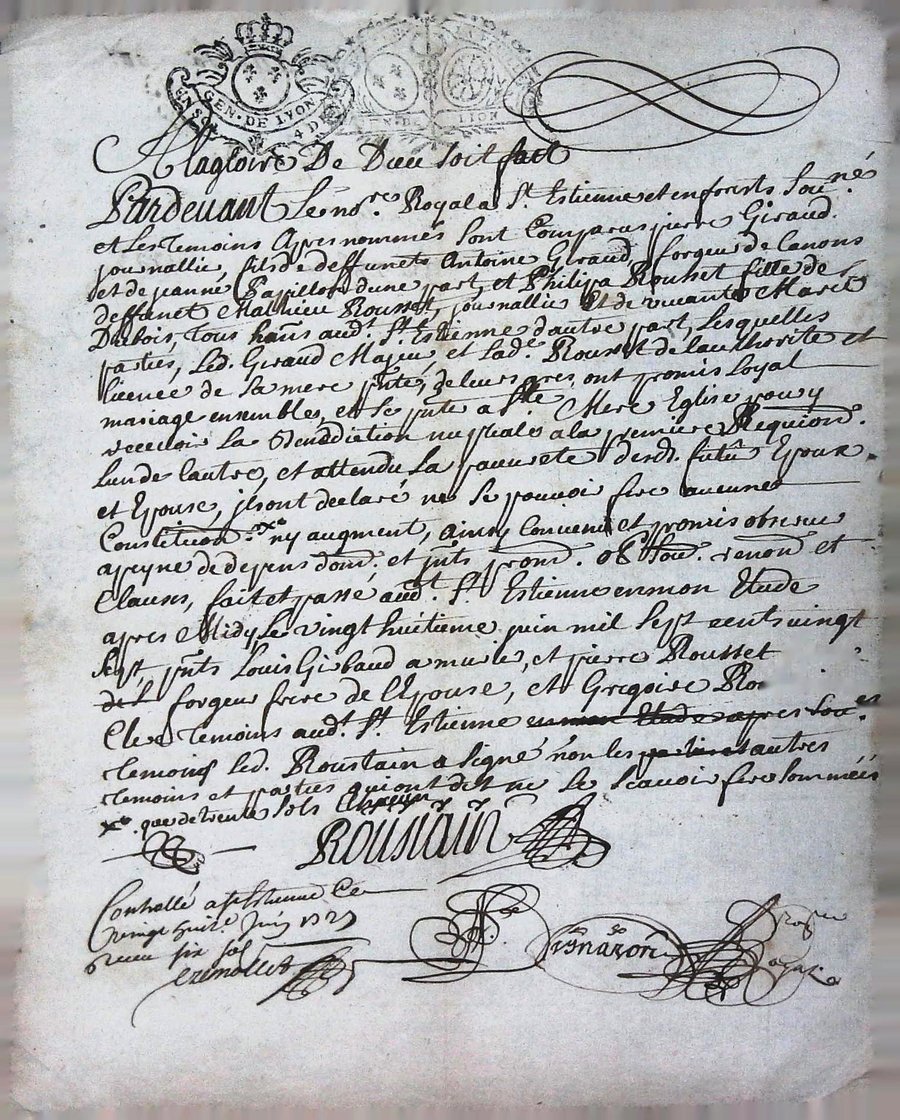 GEN. DE LYON
4 D
LYON
A la gloire De Dieu soit fait
Pardevant Le no.re Royal a St. Estienne et en forests sou.né
et Les temoins Apres nommés sont Comparus pierre Giraud
journallie, fils de deffunts Antoine Giraud, forgeur de Canons
et de jeanne Papillon dune part, et Philipa Rousset fille de
deffunct Mathieu Rousset, journallier Et de vivante Marie
Dubois, tous ha.ns aud.t St. Estienne d'autre part, Lesquelles
parties, Led. Giraud Majeur et Lad.e Rousset de lauthorité et
licence de sa mere p.nte, de leurs grés, ont promis Loyal
mariage ensembles, et se p.nter a S.te Mere Eglise pour y
recevoir La Benediction nuptiale a la premiere Requion.
Lun de lautre, et attendu La pauvreté Desd. futeu Epoux
et Epouse, jls ont declaré ne se pouvoir fere aucune
Constitution x.e ny augment, ainsy Convenu et promis observer
a peyne de depens dom. et jnts prom. ob. sou. renon. et
Clauses, fait et passé aud.t St. Estienne en mon Etude
apres Midy Le vingt huitieme juin mil sept cents vingt
sept p.nts Louis Gibaud a murie, et pierre Rousset
forgeur frere de l'Epouse, et Gregoire Ro
Clex temoins aud.t St. Estienne en mon Etude apres sou.es
temoins Led. Roustain a signé non les parties et autres
temoins et parties qui ont dit ne le scavoir fere sommées
x.e que de trente sols
Roustain
Controllé a St Estienne Ce
vingt huit Juin 1727
receu six sol